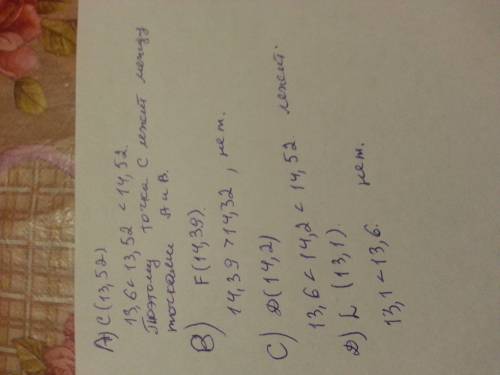 A) C(13,52)
13,6<13,52 <14,52.
Поэтому точка C лежит между
точками A и B.
B) F(14,39).
14,39 >14,32, нет.
C) D(14,2)
13,6<14,2 < 14,52 лежит.
D) L (13,1).
13,1<13,6. нет.